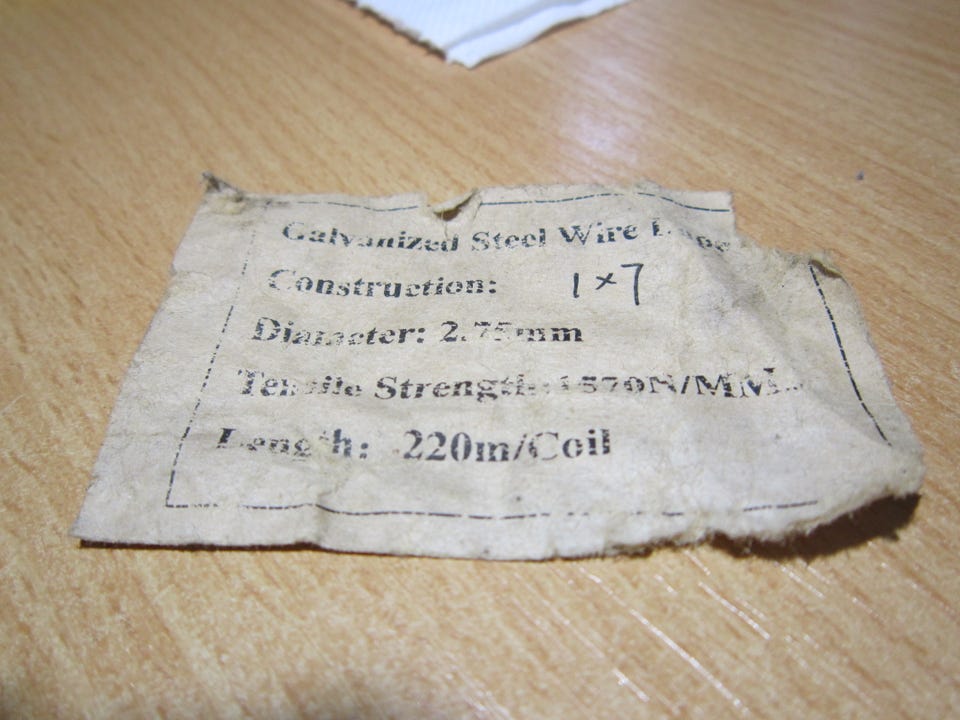 Galvanized Steel Wire Rope
Construction: 1×7
Diameter: 2.75mm
Tensile Strength: 1570N/MM
Length: 220m/Coil